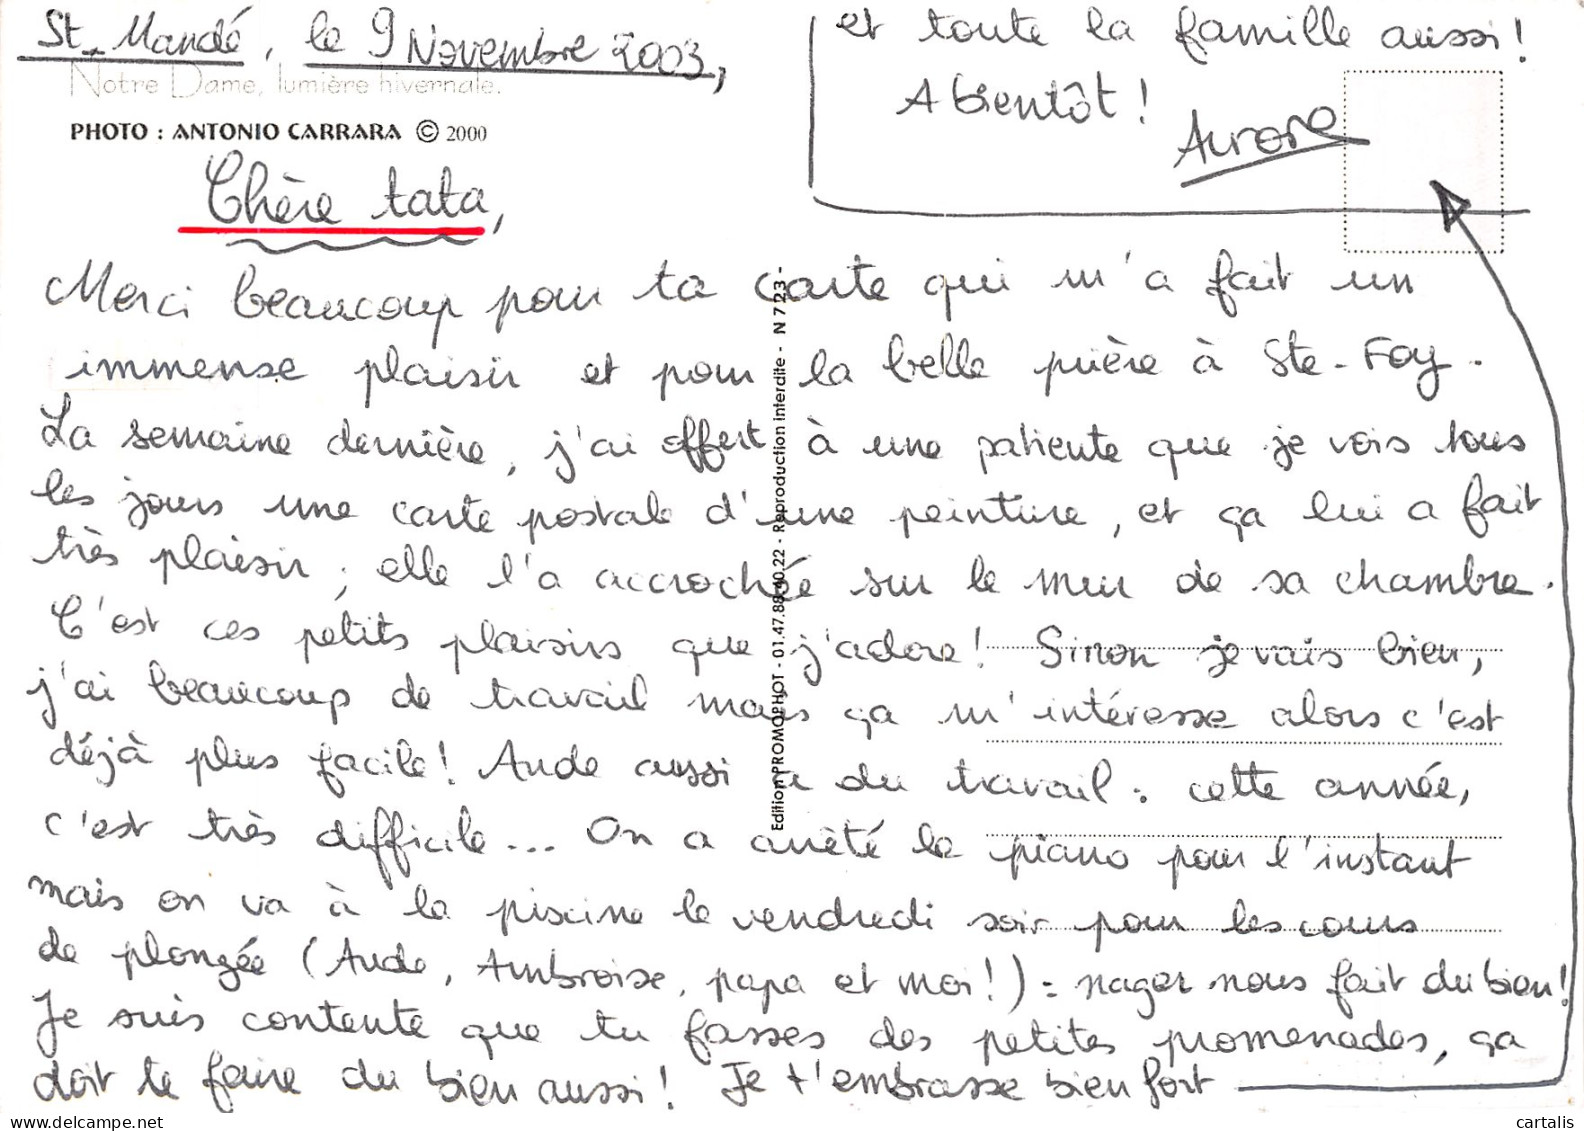 St-Mandé, le 9 Novembre 2003,
Notre Dame, lumière hivernale.
PHOTO : ANTONIO CARRARA © 2000
Chère tata,
Merci beaucoup pour ta carte qui m'a fait un
immense plaisir et pour la belle prière à Ste-Foy.
La semaine dernière, j'ai offert à une patiente que je vois tous
les jours une carte postale d'une peinture, et ça lui a fait
très plaisir ; elle l'a accrochée sur le mur de sa chambre.
C'est ces petits plaisirs que j'adore! Sinon je vais bien,
j'ai beaucoup de travail mais ça m'intéresse alors c'est
déjà plus facile! Aude aussi a du travail : cette année,
c'est très difficile... On a arrêté le piano pour l'instant
mais on va à la piscine le vendredi soir pour les cours
de plongée (Aude, Ambroise, papa et moi!) : nager nous fait du bien!
Je suis contente que tu fasses des petites promenades, ça
doit te faire du bien aussi! Je t'embrasse bien fort
et toute la famille aussi!
A bientôt!
Aurore
Edition PROMOPHOT - 01.47.88.40.22 - Reproduction interdite - N 723 -
cartalis